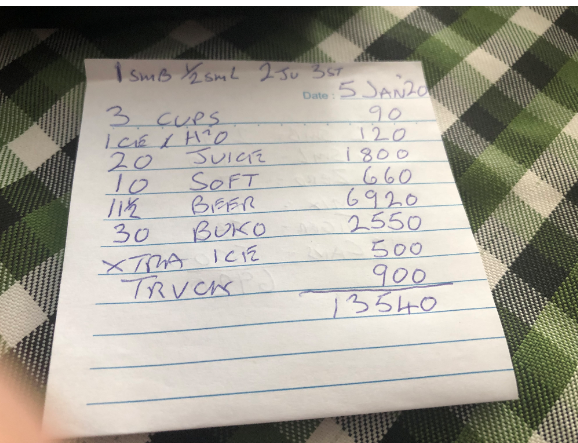 1 SMB ½ SML 2 JU 3 ST
Date: 5 JAN 20
3 CUPS 90
1 CE & H²O 120
20 JUICE 1800
10 SOFT 660
11½ BEER 6920
30 BUKO 2550
XTRA ICE 500
TRUCK 900
13540